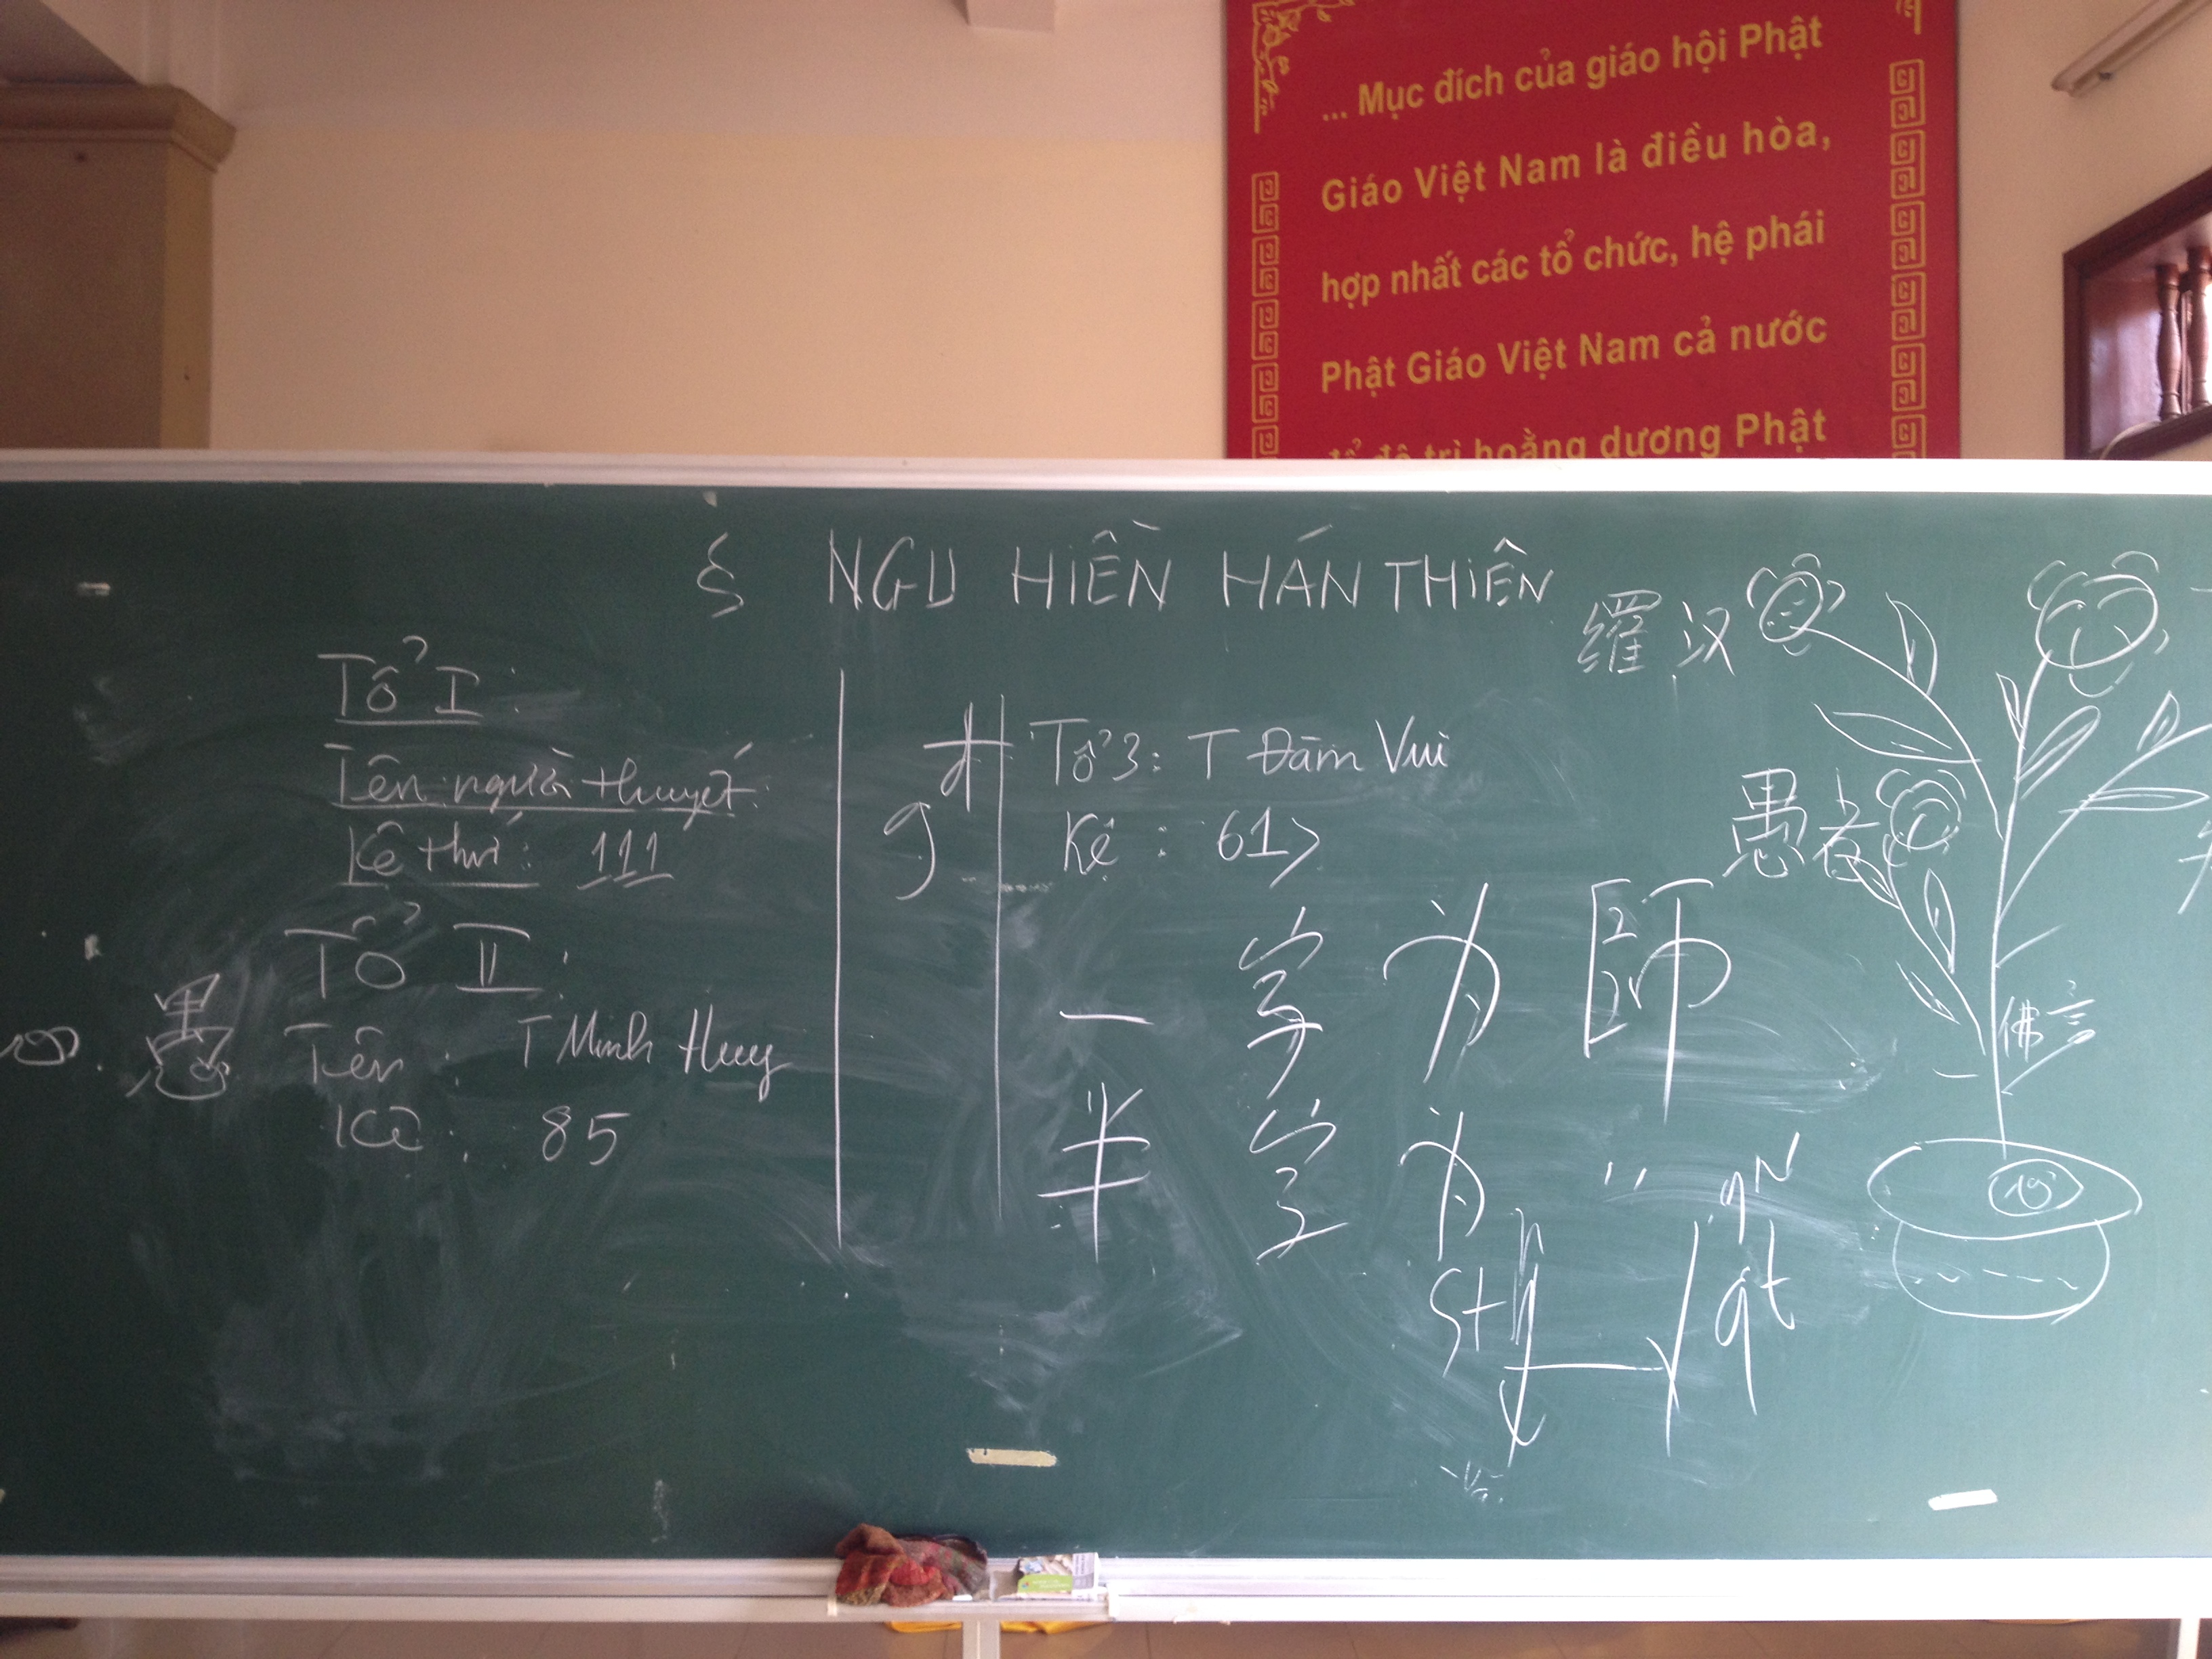 ... Mục đích của giáo hội Phật
Giáo Việt Nam là điều hòa,
hợp nhất các tổ chức, hệ phái
Phật Giáo Việt Nam cả nước
để độ trì hoằng dương Phật
§ NGU HIỀN HÁN THIÊN
羅汉
Tổ I:
Tên người thuyết:
Kệ thứ: 111
Tổ II:
愚
Tên: T Minh Huy
Kệ: 85
Tổ 3: T Đàm Vui
Kệ: 61
一字为師
半字为 "
愚者
佛言